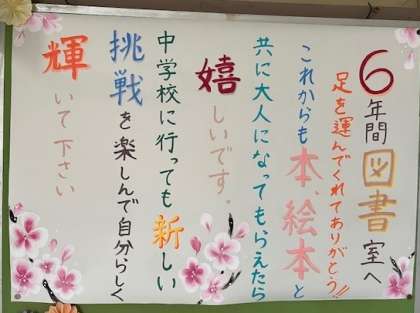 6年間図書室へ
足を運んでくれてありがとう!!
これからも本、絵本と
共に大人になってもらえたら
嬉しいです。
中学校に行っても新しい
挑戦を楽しんで自分らしく
輝いて下さい